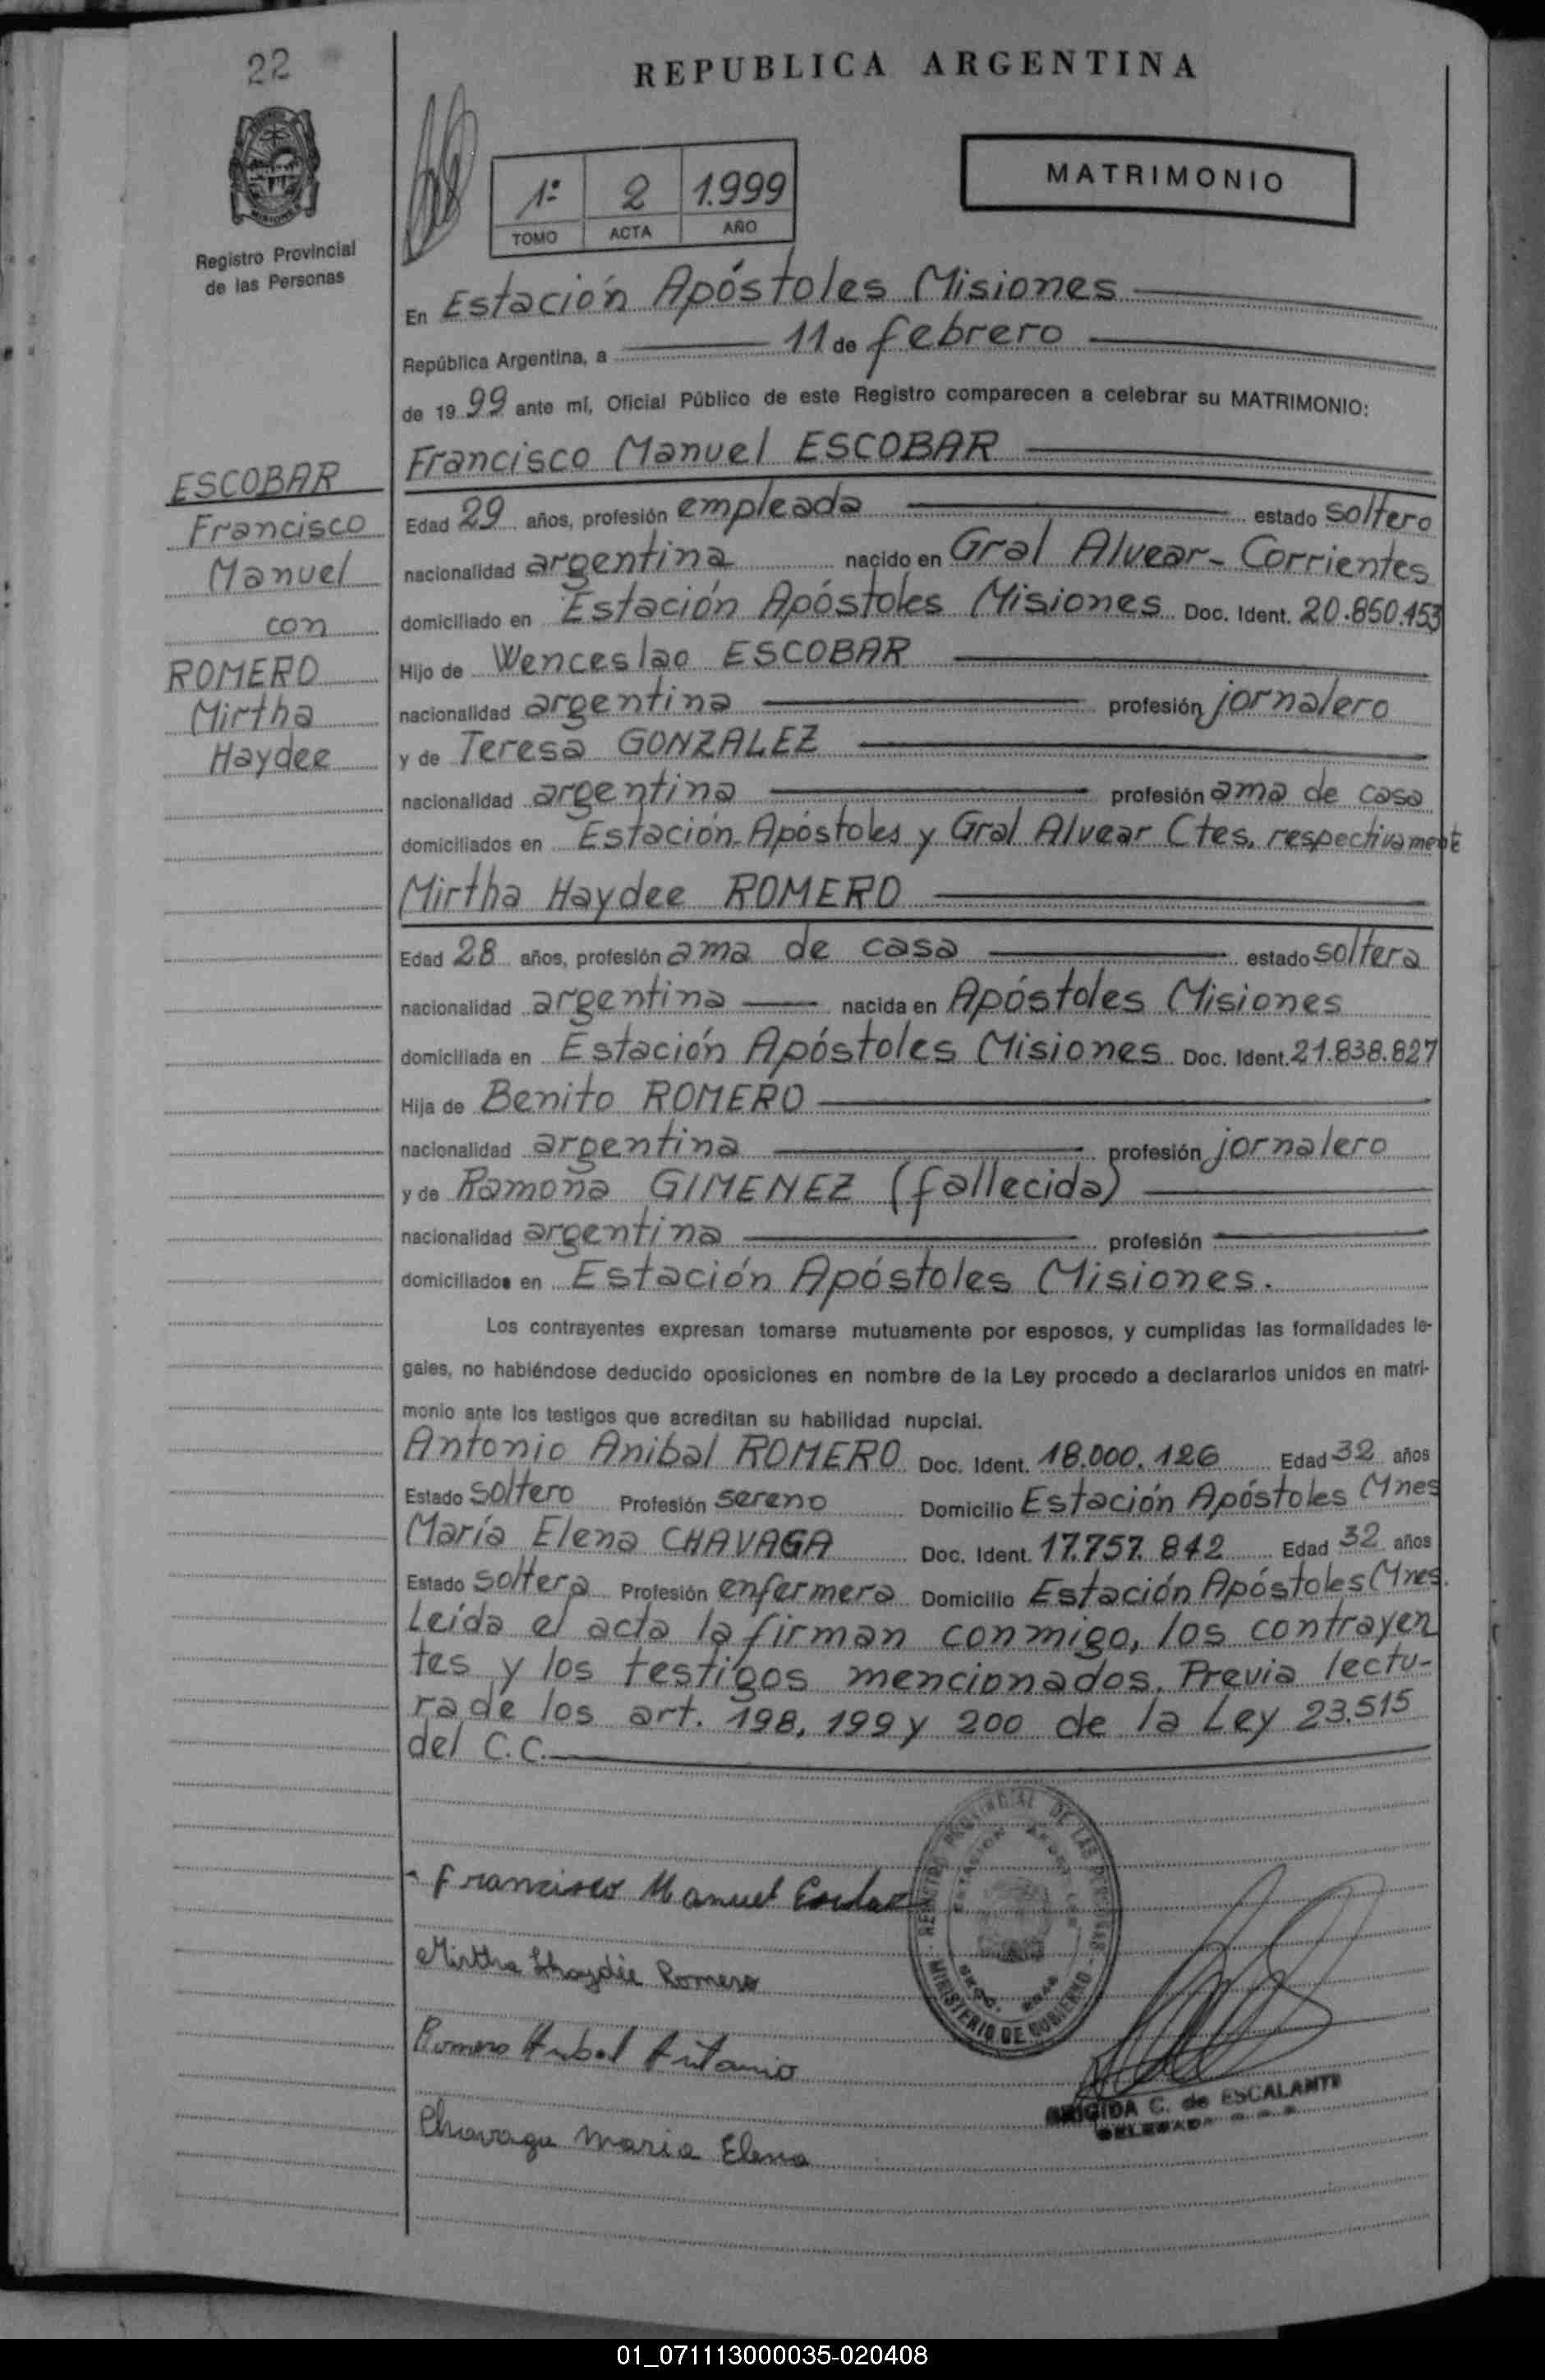 22
REPUBLICA ARGENTINA
Registro Provincial
de las Personas
1º 2 1.999
TOMO ACTA AÑO
MATRIMONIO
En Estación Apóstoles Misiones
República Argentina, a 11 de febrero
de 19 99 ante mí, Oficial Público de este Registro comparecen a celebrar su MATRIMONIO:
ESCOBAR
Francisco
Manuel
con
ROMERO
Mirtha
Haydee
Francisco Manuel ESCOBAR
Edad 29 años, profesión empleada estado soltero
nacionalidad argentina nacido en Gral Alvear - Corrientes
domiciliado en Estación Apóstoles Misiones Doc. Ident. 20.850.453
Hijo de Wenceslao ESCOBAR
nacionalidad argentina profesión jornalero
y de Teresa GONZALEZ
nacionalidad argentina profesión ama de casa
domiciliados en Estación Apóstoles y Gral Alvear Ctes, respectivamente
Mirtha Haydee ROMERO
Edad 28 años, profesión ama de casa estado soltera
nacionalidad argentina nacida en Apóstoles Misiones
domiciliada en Estación Apóstoles Misiones Doc. Ident. 21.838.827
Hija de Benito ROMERO
nacionalidad argentina profesión jornalero
y de Ramona GIMENEZ (fallecida)
nacionalidad argentina profesión
domiciliados en Estación Apóstoles Misiones.
Los contrayentes expresan tomarse mutuamente por esposos, y cumplidas las formalidades le-
gales, no habiéndose deducido oposiciones en nombre de la Ley procedo a declararlos unidos en matri-
monio ante los testigos que acreditan su habilidad nupcial.
Antonio Anibal ROMERO Doc. Ident. 18.000.126 Edad 32 años
Estado soltero Profesión sereno Domicilio Estación Apóstoles Mnes
María Elena CHAVAGA Doc. Ident. 17.757.842 Edad 32 años
Estado soltera Profesión enfermera Domicilio Estación Apóstoles Mnes.
Leída el acta la firman conmigo, los contrayen
tes y los testigos mencionados. Previa lectu-
ra de los art. 198, 199 y 200 de la Ley 23.515
del C.C.
REGISTRO PROVINCIAL DE LAS PERSONAS
MINISTERIO DE GOBIERNO
Francisco Manuel Escobar
Mirtha Haydée Romero
Romero Anibal Antonio
Chavaga Maria Elena
BRIGIDA C. de ESCALANTE
01_071113000035-020408